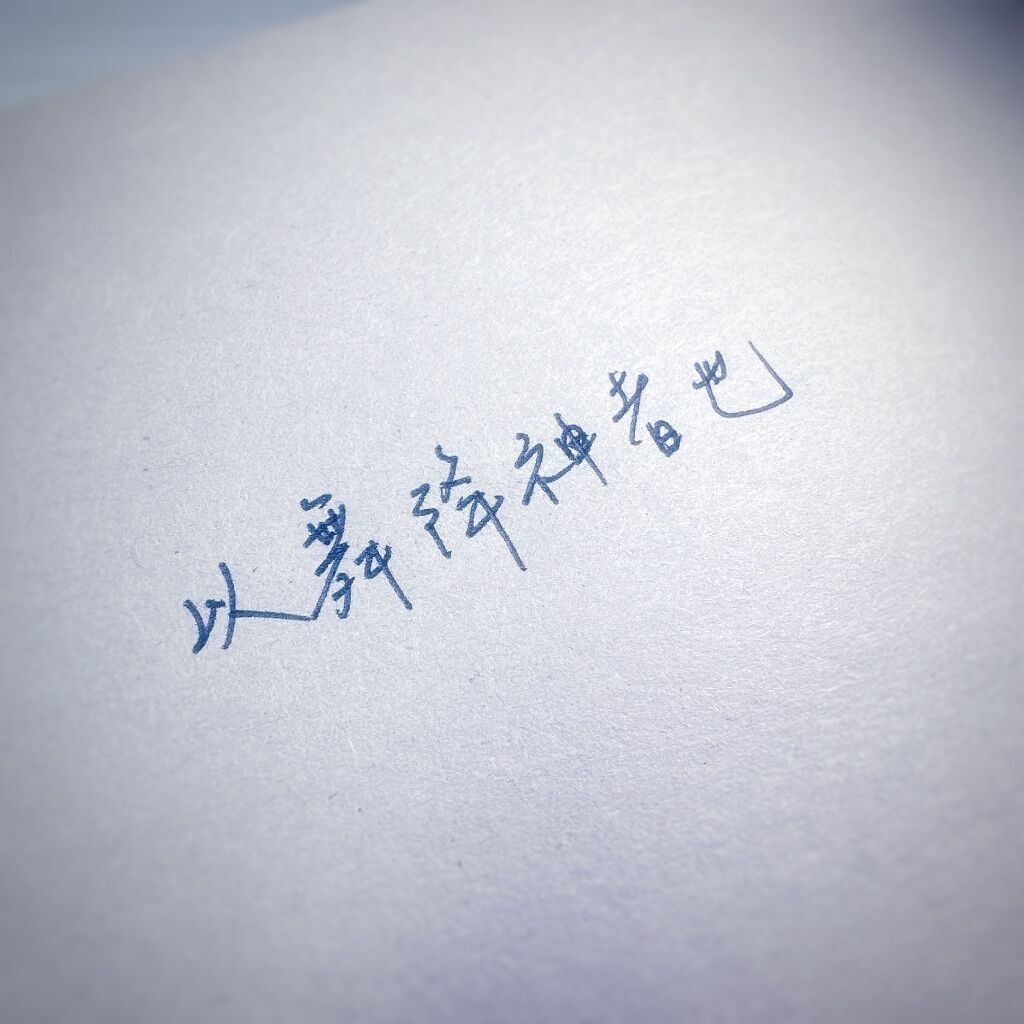 以舞降神者也